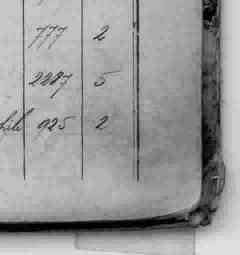 777 2
2287 5
925 2